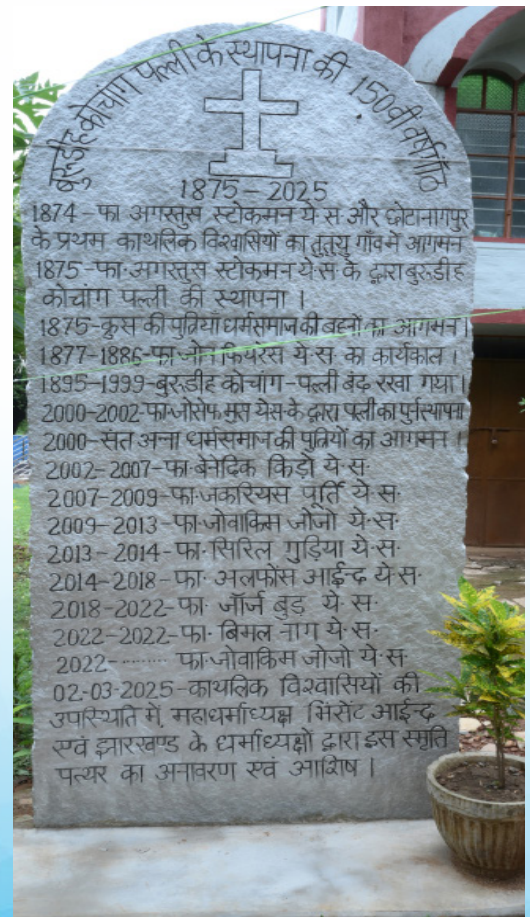 बुरुडीह कोचांग पल्ली के स्थापना की 150वीं वर्षगाँठ
1875 – 2025
1874 – फा अगस्तुस स्टोकमन ये॰स और छोटानागपुर
के प्रथम काथलिक विश्वासियों का तुतुयु गाँव में आगमन
1875 – फा॰ अगस्तुस स्टोकमन ये॰स के द्वारा बुरुडीह
कोचांग पल्ली की स्थापना ।
1875 – क्रुस की पुत्रियाँ धर्मसमाज की बहनों का आगमन ।
1877 – 1886 – फा जोन फियरेस ये॰स॰ का कार्यकाल ।
1895 – 1999 – बुरुडीह कोचांग – पल्ली बंद रखा गया ।
2000 – 2002 – फा॰ जोसेफ मुस येस॰ के द्वारा पल्ली का पुर्नस्थापना
2000 – संत अन्ना धर्मसमाज की पुत्रियों का आगमन ।
2002 – 2007 – फा॰ बेनदिक किड़ो ये॰स॰
2007 – 2009 – फा॰ जकरियस पूर्ति ये॰स॰
2009 – 2013 – फा॰ जोवाकिम जोजो ये॰स॰
2013 – 2014 – फा॰ सिरिल गुड़िया ये॰स॰
2014 – 2018 – फा॰ अलफोंस आईन्द ये॰स॰
2018 – 2022 – फा॰ जॉर्ज बुड़ ये॰स॰
2022 – 2022 – फा॰ बिमल नाग ये॰स॰
2022 – ......... फा॰ जोवाकिम जोजो ये॰स
02-03-2025 – काथलिक विश्वासियों की
उपस्थिति में, महाधर्माध्यक्ष भिंसेंट आईन्द
एवं झारखण्ड के धर्माध्यक्षों द्वारा इस स्मृति
पत्थर का अनावरण एवं आशिष ।